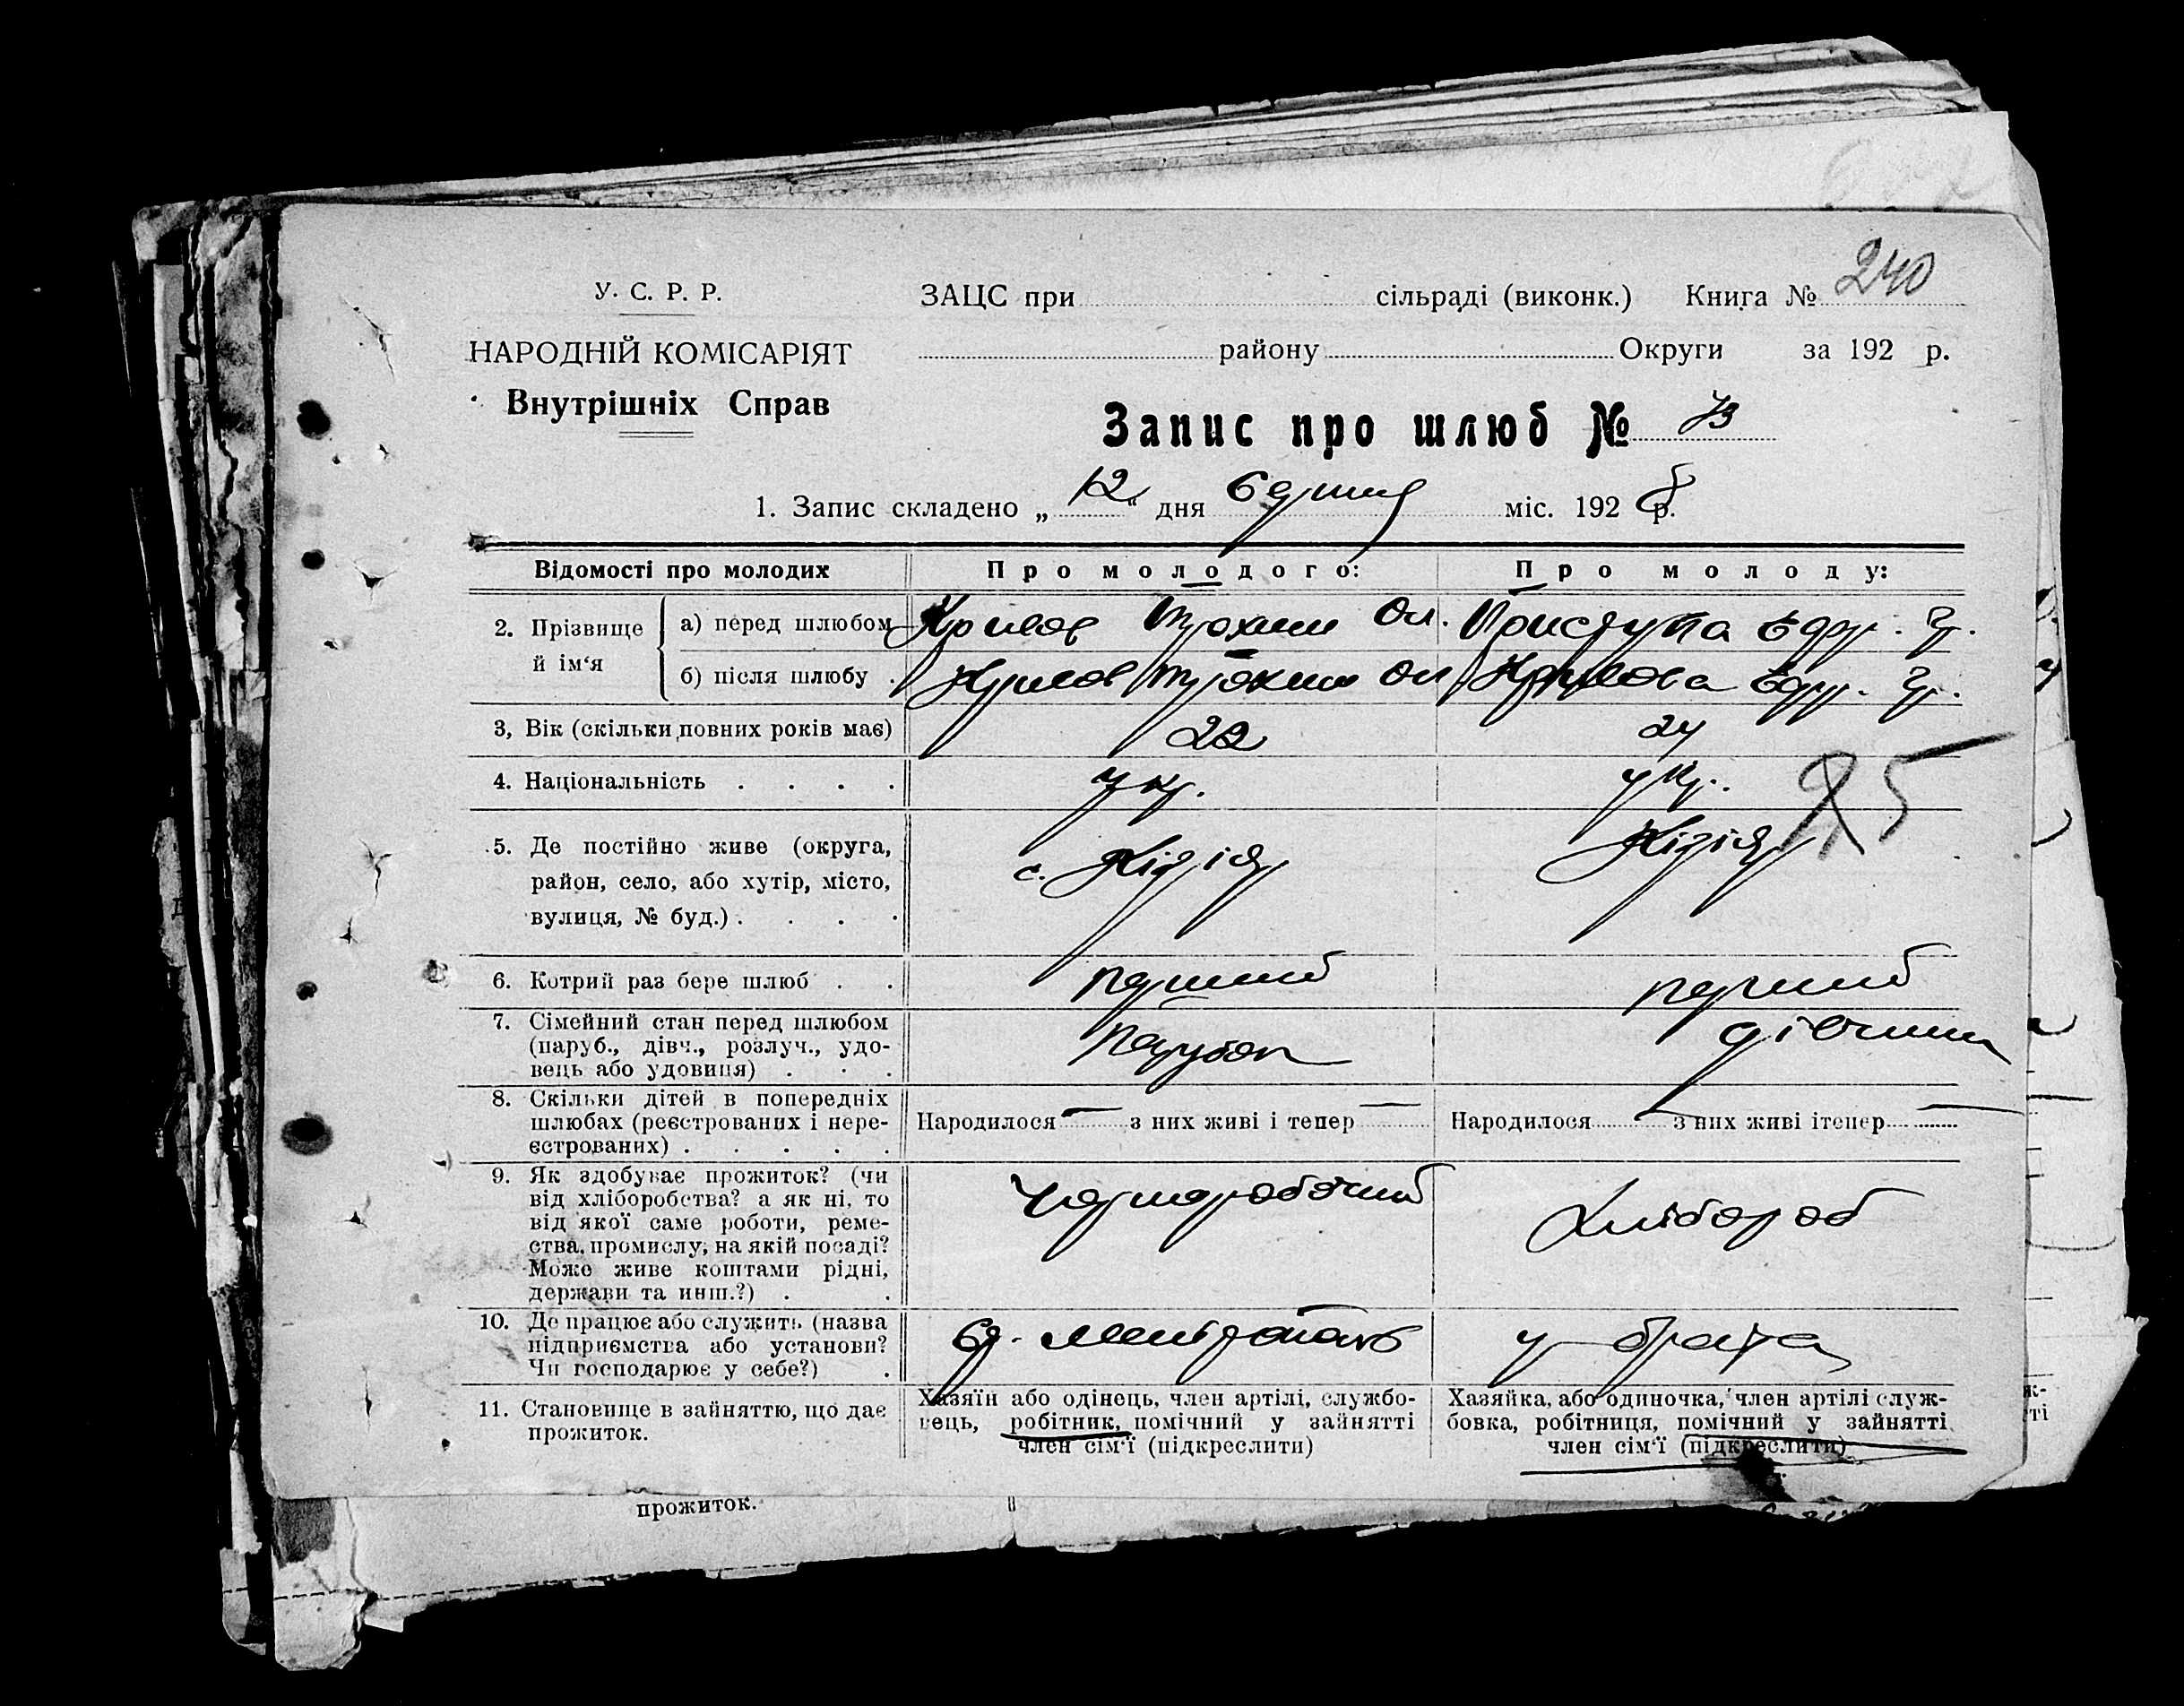 240
У. С. Р. Р.
ЗАЦС при сільраді (виконк.) Книга №
НАРОДНІЙ КОМІСАРІЯТ
району Округи за 192 р.
Внутрішніх Справ
Запис про шлюб № 73
1. Запис складено „12“ дня серпня міс. 192 р.
Відомості про молодих
Про молодого:
Про молоду:
2. Прізвище й ім‘я
а) перед шлюбом
Крилов Трохим Ол.
Приступа Єфр. Гр.
б) після шлюбу .
Крилов Трохим Ол.
Крилова Єфр. Гр.
3, Вік (скільки повних років має)
22
24
4. Національність . . . .
укр.
укр.
25
5. Де постійно живе (округа,
район, село, або хутір, місто,
вулиця, № буд.) . . . .
с.
6. Котрий раз бере шлюб . .
перший
перший
7. Сімейний стан перед шлюбом
(паруб., дівч., розлуч., удо-
вець або удовиця) . . .
парубок
дівчина
8. Скільки дітей в попередніх
шлюбах (реєстрованих і нере-
єстрованих) . . . . .
Народилося — з них живі і тепер —
Народилося — з них живі ітепер —
9. Як здобуває прожиток? (чи
від хліборобства? а як ні, то
від якої саме роботи, реме-
ства, промислу, на якій посаді?
Може живе коштами рідні,
держави та инш.?) . .
Чорноробочий
Хлібороб
10. Де працює або служить (назва
підприємства або установи?
Чи господарює у себе?) .
у брата
11. Становище в зайняттю, що дає
прожиток.
Хазяїн або одінець, член артілі, службо-
вець, робітник, помічний у зайнятті
член сім‘ї (підкреслити)
Хазяйка, або одиночка, член артілі служ-
бовка, робітниця, помічний у зайнятті
член сім‘ї (підкреслити)
прожиток.